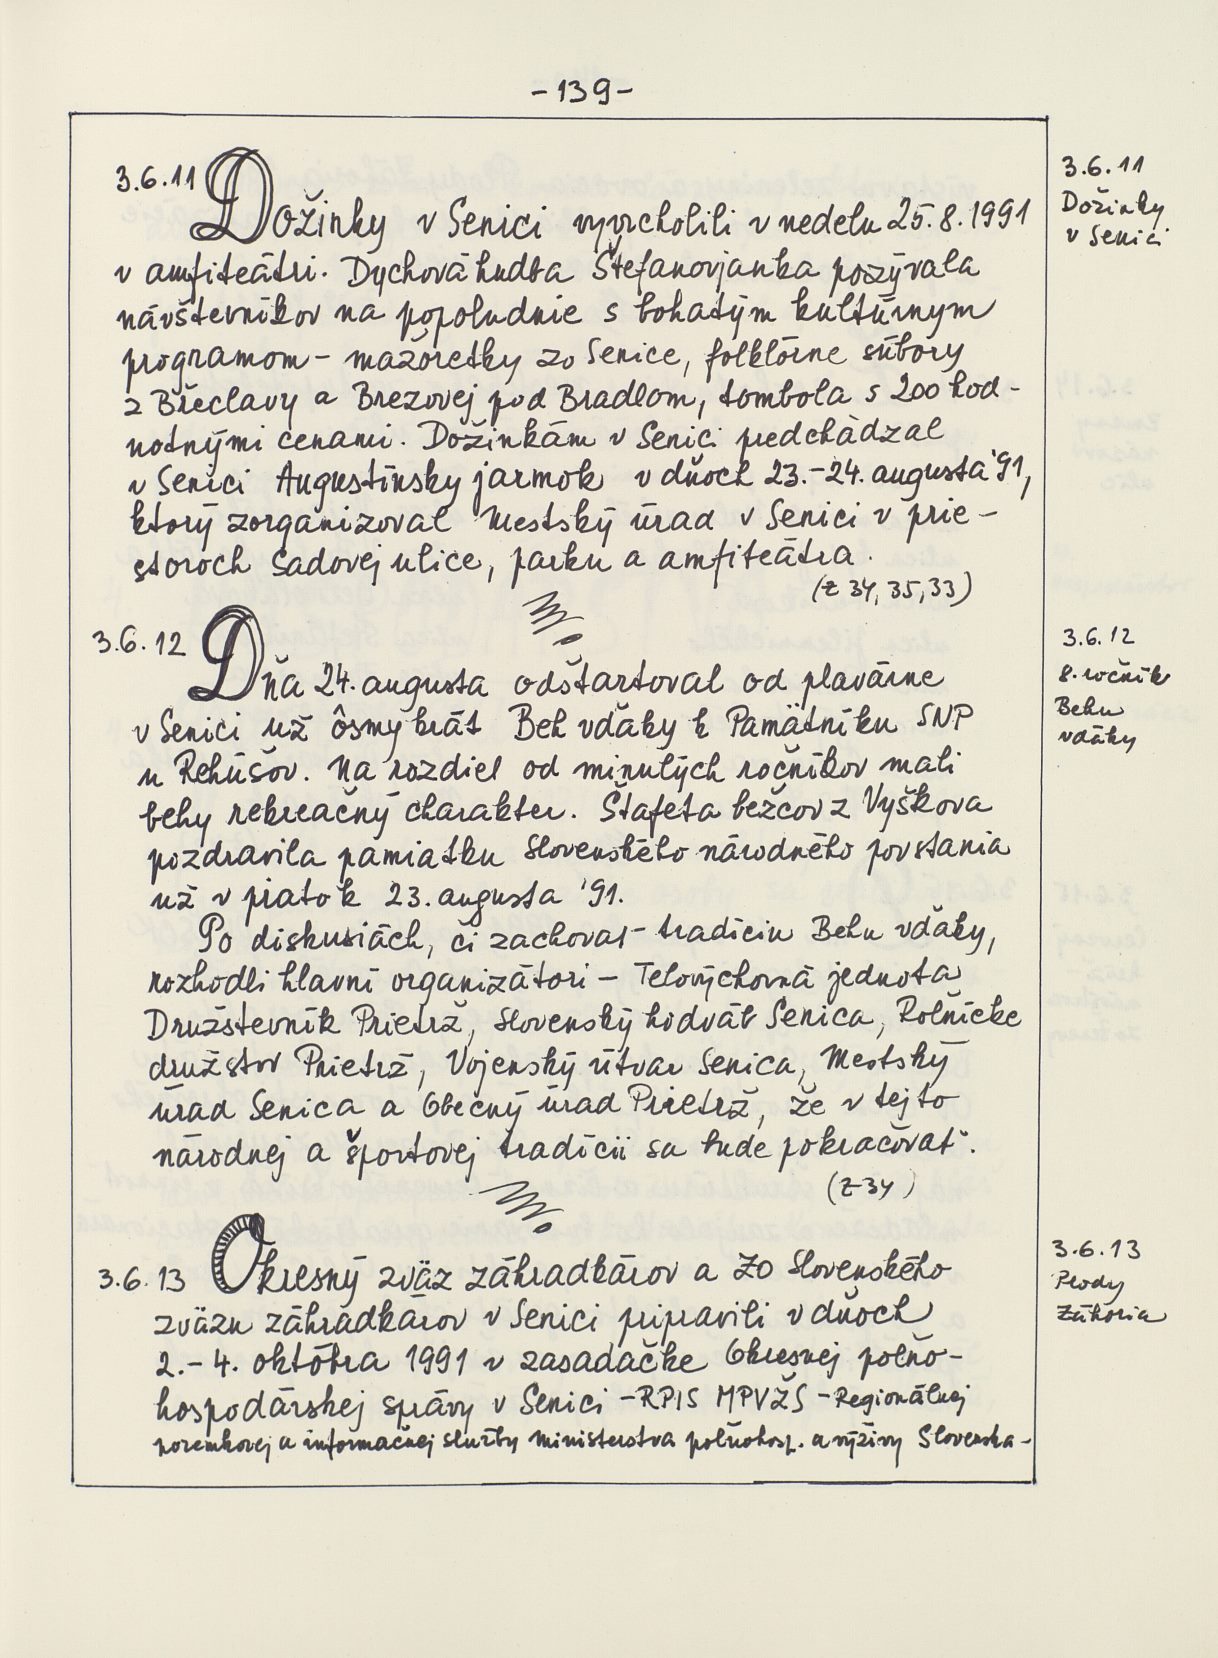 -139-
3.6.11 Dožinky v Senici vyvrcholili v nedeľu 25.8.1991
v amfiteátri. Dychová hudba Štefanovjanka pozývala
návštevníkov na popoludnie s bohatým kultúrnym
programom - mažoretky zo Senice, folklórne súbory
z Břeclavy a Brezovej pod Bradlom, tombola s 200 hod-
notnými cenami. Dožinkám v Senici predchádzal
v Senici Augustínsky jarmok v dňoch 23.-24. augusta '91,
ktorý zorganizoval Mestský úrad v Senici v prie-
storoch Sadovej ulice, parku a amfiteátra.
(Z 34, 35, 33)
3.6.12 Dňa 24. augusta odštartoval od plavárne
v Senici už ôsmy krát Beh vďaky k Pamätníku SNP
u Rehúšov. Na rozdiel od minulých ročníkov mali
behy rekreačný charakter. Štafeta bežcov z Vyškova
pozdravila pamiatku Slovenského národného povstania
už v piatok 23. augusta '91.
Po diskusiách, či zachovať tradíciu Behu vďaky,
rozhodli hlavní organizátori - Telovýchovná jednota
Družstevník Prietrž, Slovenský hodváb Senica, Roľnícke
družstvo Prietrž, Vojenský útvar Senica, Mestský
úrad Senica a Obecný úrad Prietrž, že v tejto
národnej a športovej tradícii sa bude pokračovať.
(Z 34)
3.6.13 Okresný zväz záhradkárov a ZO Slovenského
zväzu záhradkárov v Senici pripravili v dňoch
2.-4. októbra 1991 v zasadačke Okresnej poľno-
hospodárskej správy v Senici -RPIS MPVŽS - Regionálnej
poremkovej a informačnej služby ministerstva poľnohosp. a výživy Slovenska-
3.6.11
Dožinky
v Senici
3.6.12
8. ročník
Behu
vďaky
3.6.13
Plody
Záhoria